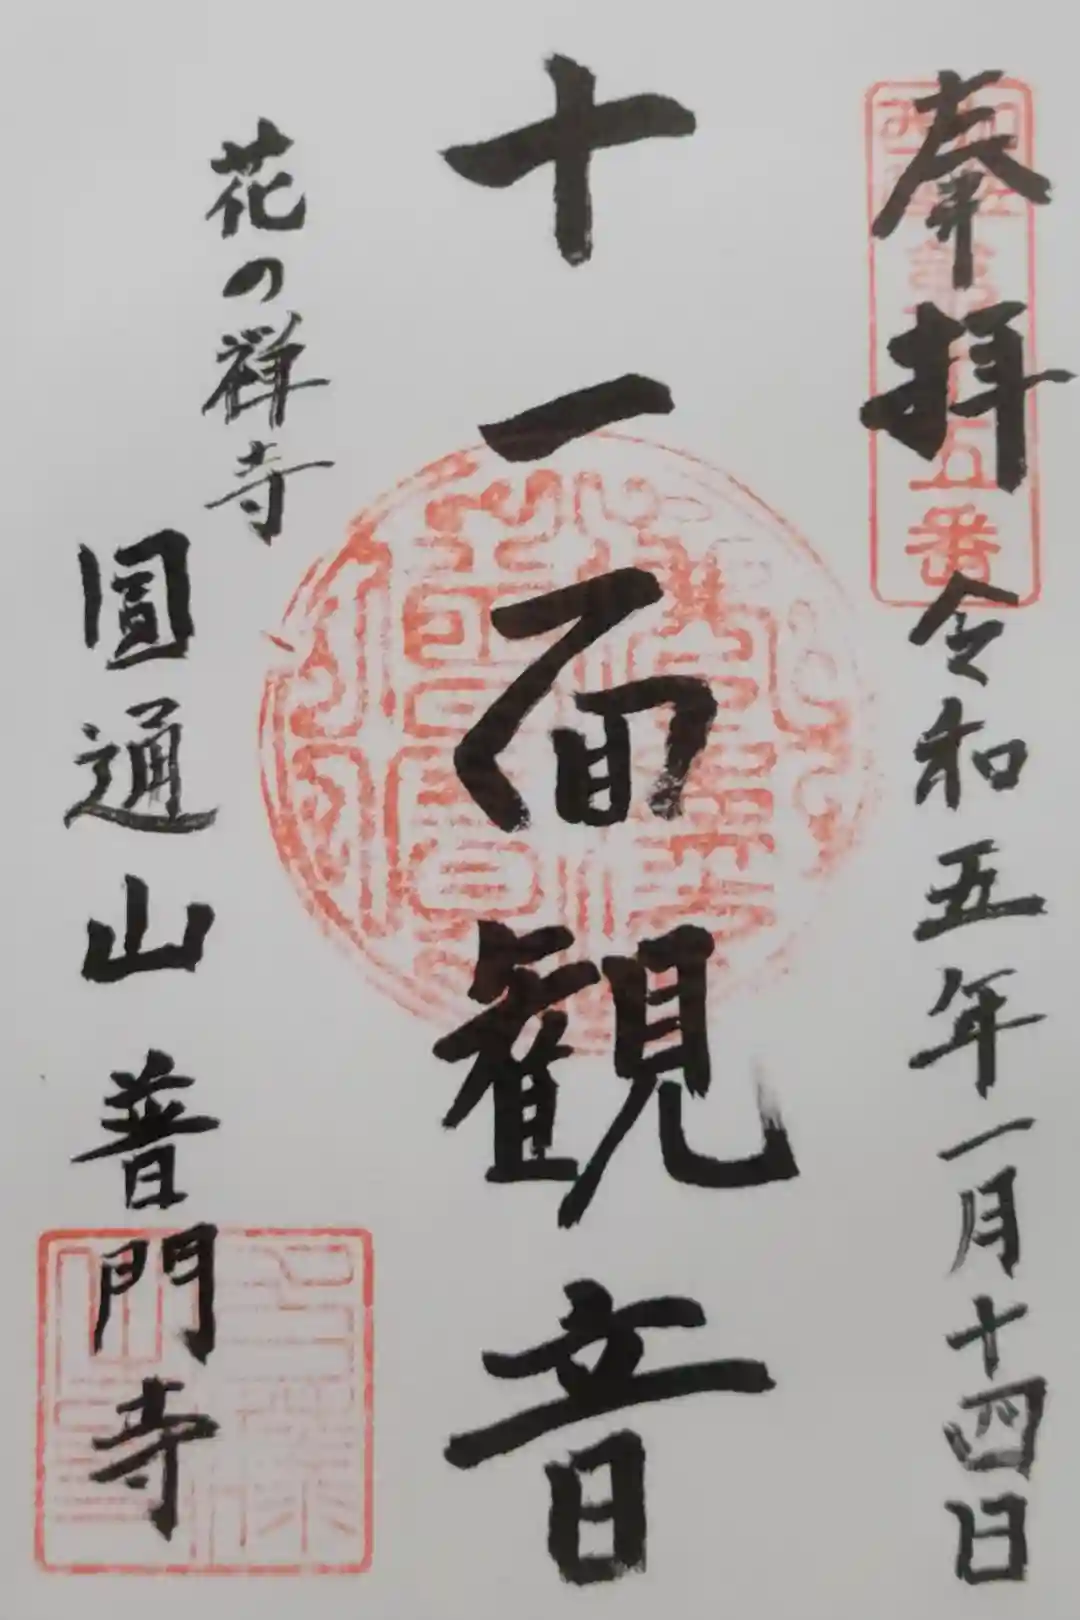 奉拝
令和五年一月十四日
十一面観音
花の禅寺
圓通山普門寺
五番